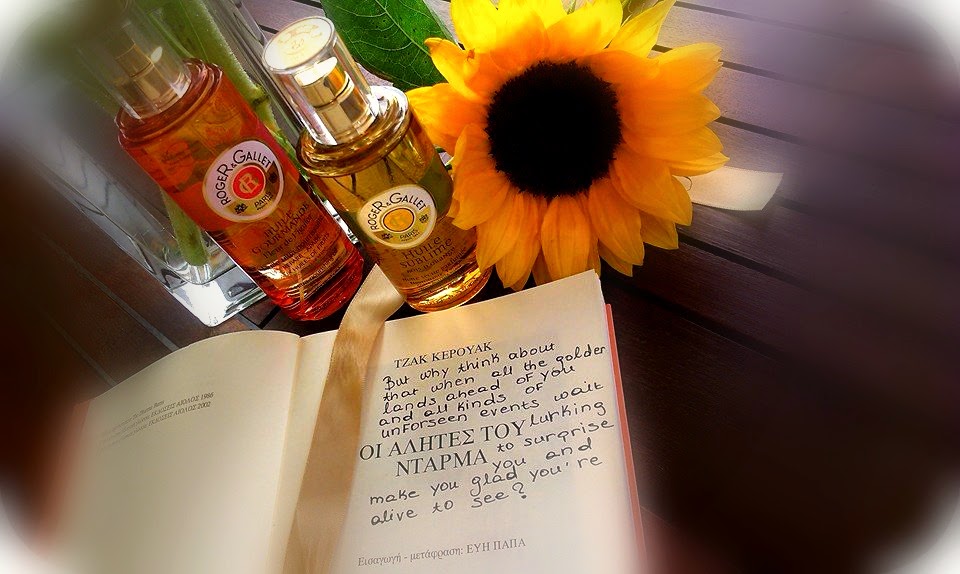 ROGER & GALLET
PARIS
HUILE
ROGER & GALLET
PARIS
HUILE
SUBLIME
ΕΚΔΟΣΕΙΣ ΑΙΟΛΟΣ 1986
ΕΚΔΟΣΕΙΣ ΑΙΟΛΟΣ 2002
ΤΖΑΚ ΚΕΡΟΥΑΚ
But why think about
that when all the golden
lands ahead of you
and all kinds of
unforseen events wait
ΟΙ ΑΛΗΤΕΣ ΤΟΥ lurking
ΝΤΑΡΜΑ to surprise
you and
make you glad you're
alive to see?
Εισαγωγή - μετάφραση: ΕΥΗ ΠΑΠΑ